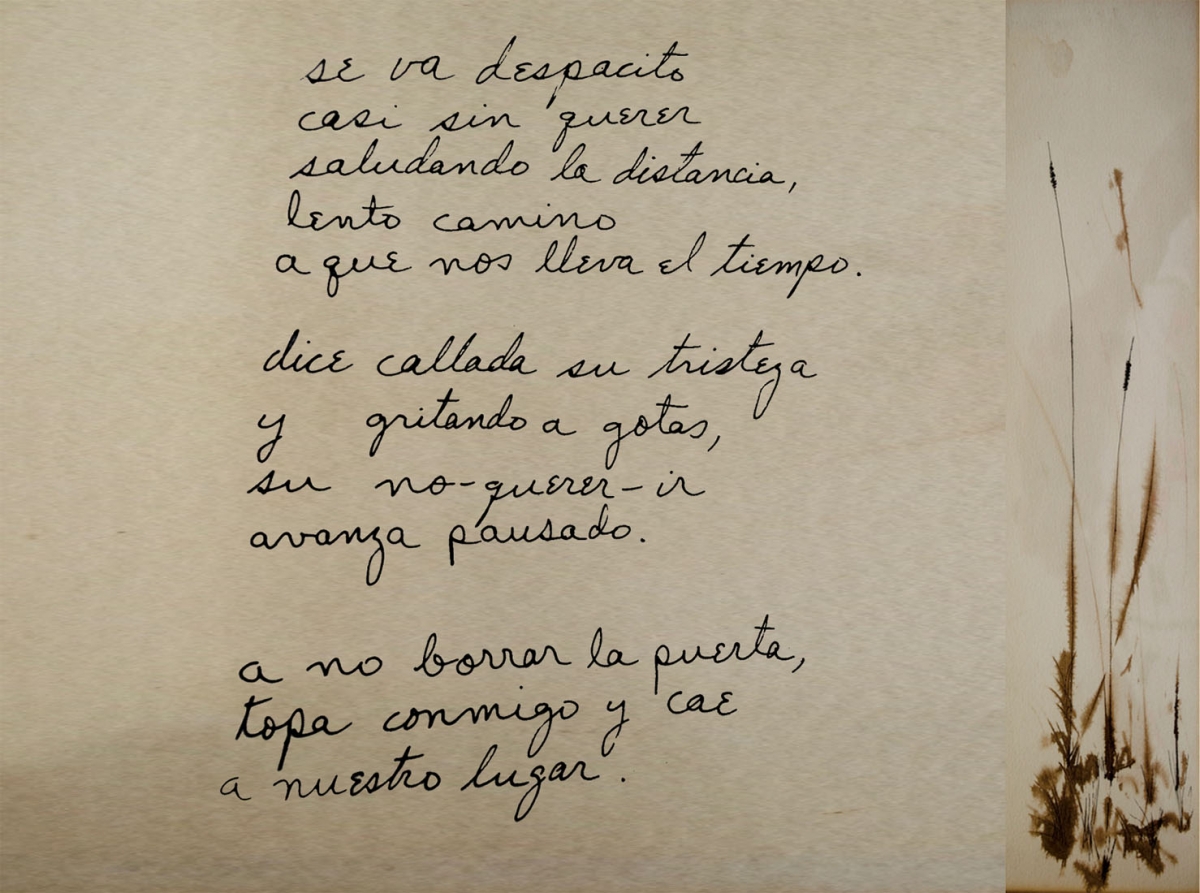 se va despacito
casi sin querer
saludando la distancia,
lento camino
a que nos lleva el tiempo.
dice callada su tristeza
y gritando a gotas,
su no-querer-ir
avanza pausado.
a no borrar la puerta,
topa conmigo y cae
a nuestro lugar.